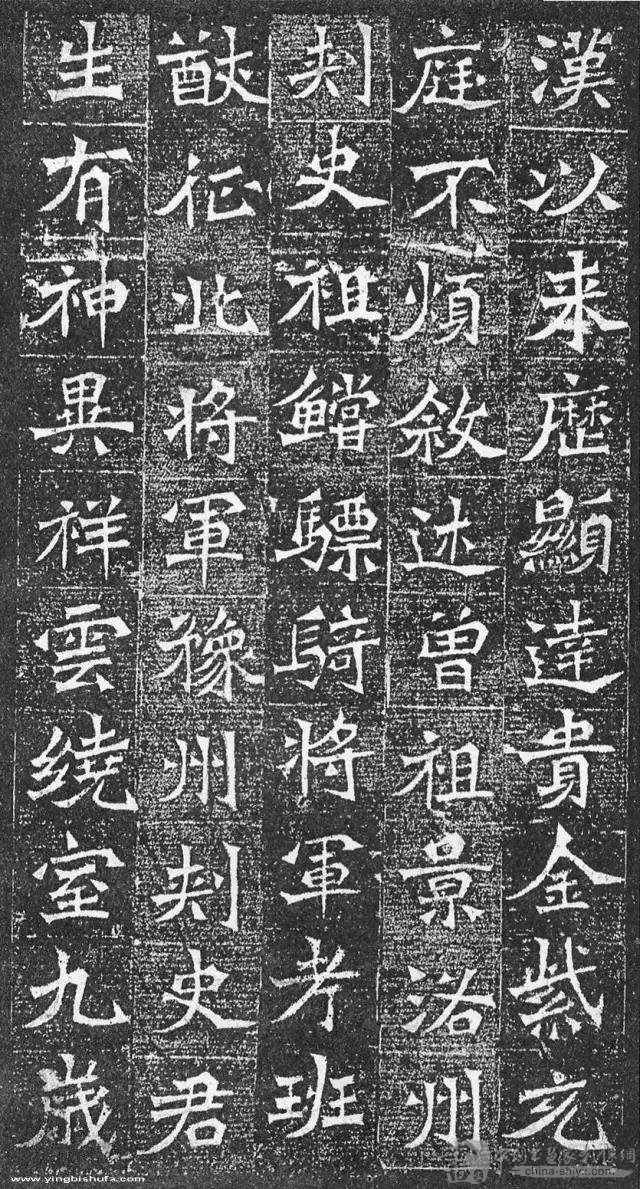 漢以来歷顯達貴金紫充
庭不煩敘述曾祖景洛州
刾史祖鱨驃騎将軍考班
猷征北将軍豫州刾史君
生有神異祥雲繞室九歲
www.yingbishufa.com
china-shiyx.com